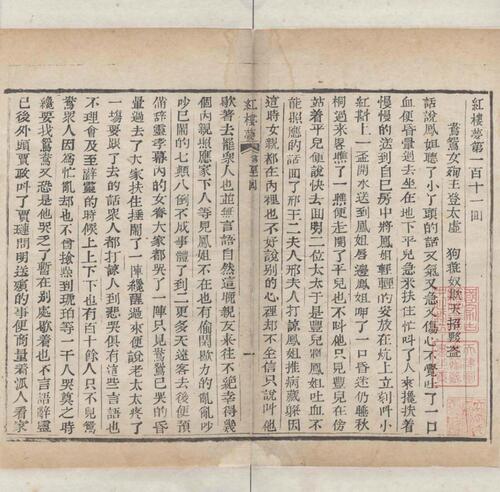 紅樓夢第一百十一回
鴛鴦女殉主登太虛 狗彘奴欺天招夥盜
話說鳳姐聽了小丫頭的話又氣又急又傷心不覺吐了一口
血便昏暈過去坐在地下平兒急來扶住忙叫了人來攙扶着
慢慢的送到自己房中將鳳姐輕輕的安放在炕上立刻叫小
紅斟上一盃開水送到鳳姐唇邊鳳姐呷了一口昏迷仍睡秋
桐過來畧瞧了一瞧便走開了平兒也不叫他只見豐兒在傍
站着平兒便說快去回明二位太太于是豐兒將鳳姐吐血不
能照應的話回了邢王二夫人邢夫人打諒鳳姐推病藏躲因
這時女親都在內裡也不好說别的心裡却不全信只說叫他
紅樓夢
歇著去罷衆人也並無言語自然這晚親友來往不絶幸得幾
個內親照應家下人等見鳳姐不在也有偷閒歇力的亂亂吵
吵已鬧的七顛八倒不成事體了到二更多天遠客去後便預
備辭靈孝幕內的女眷大家都哭了一陣只見鴛鴦已哭的昏
暈過去了大家扶住捶鬧了一陣纔醒過來便說老太太疼了
一場要跟了去的話衆人都打諒人到悲哭俱有這些言語也
不理會及至辭靈的時候上上下下也有百十餘人只不見鴛
鴦衆人因爲忙亂却也不曾撿點到琥珀等一千人哭奠之時
纔要找鴛鴦又恐是他哭乏了暫在别處歇着也不言語辭靈
已後外頭賈政叫了賈璉問明送殯的事便商量着派人看家